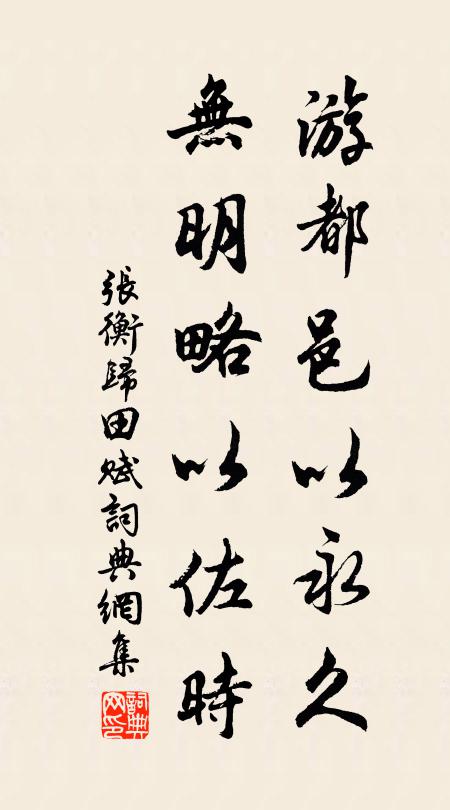 游都邑以永久
無明略以佐時
張衡歸田賦詞典網集
詞典网印